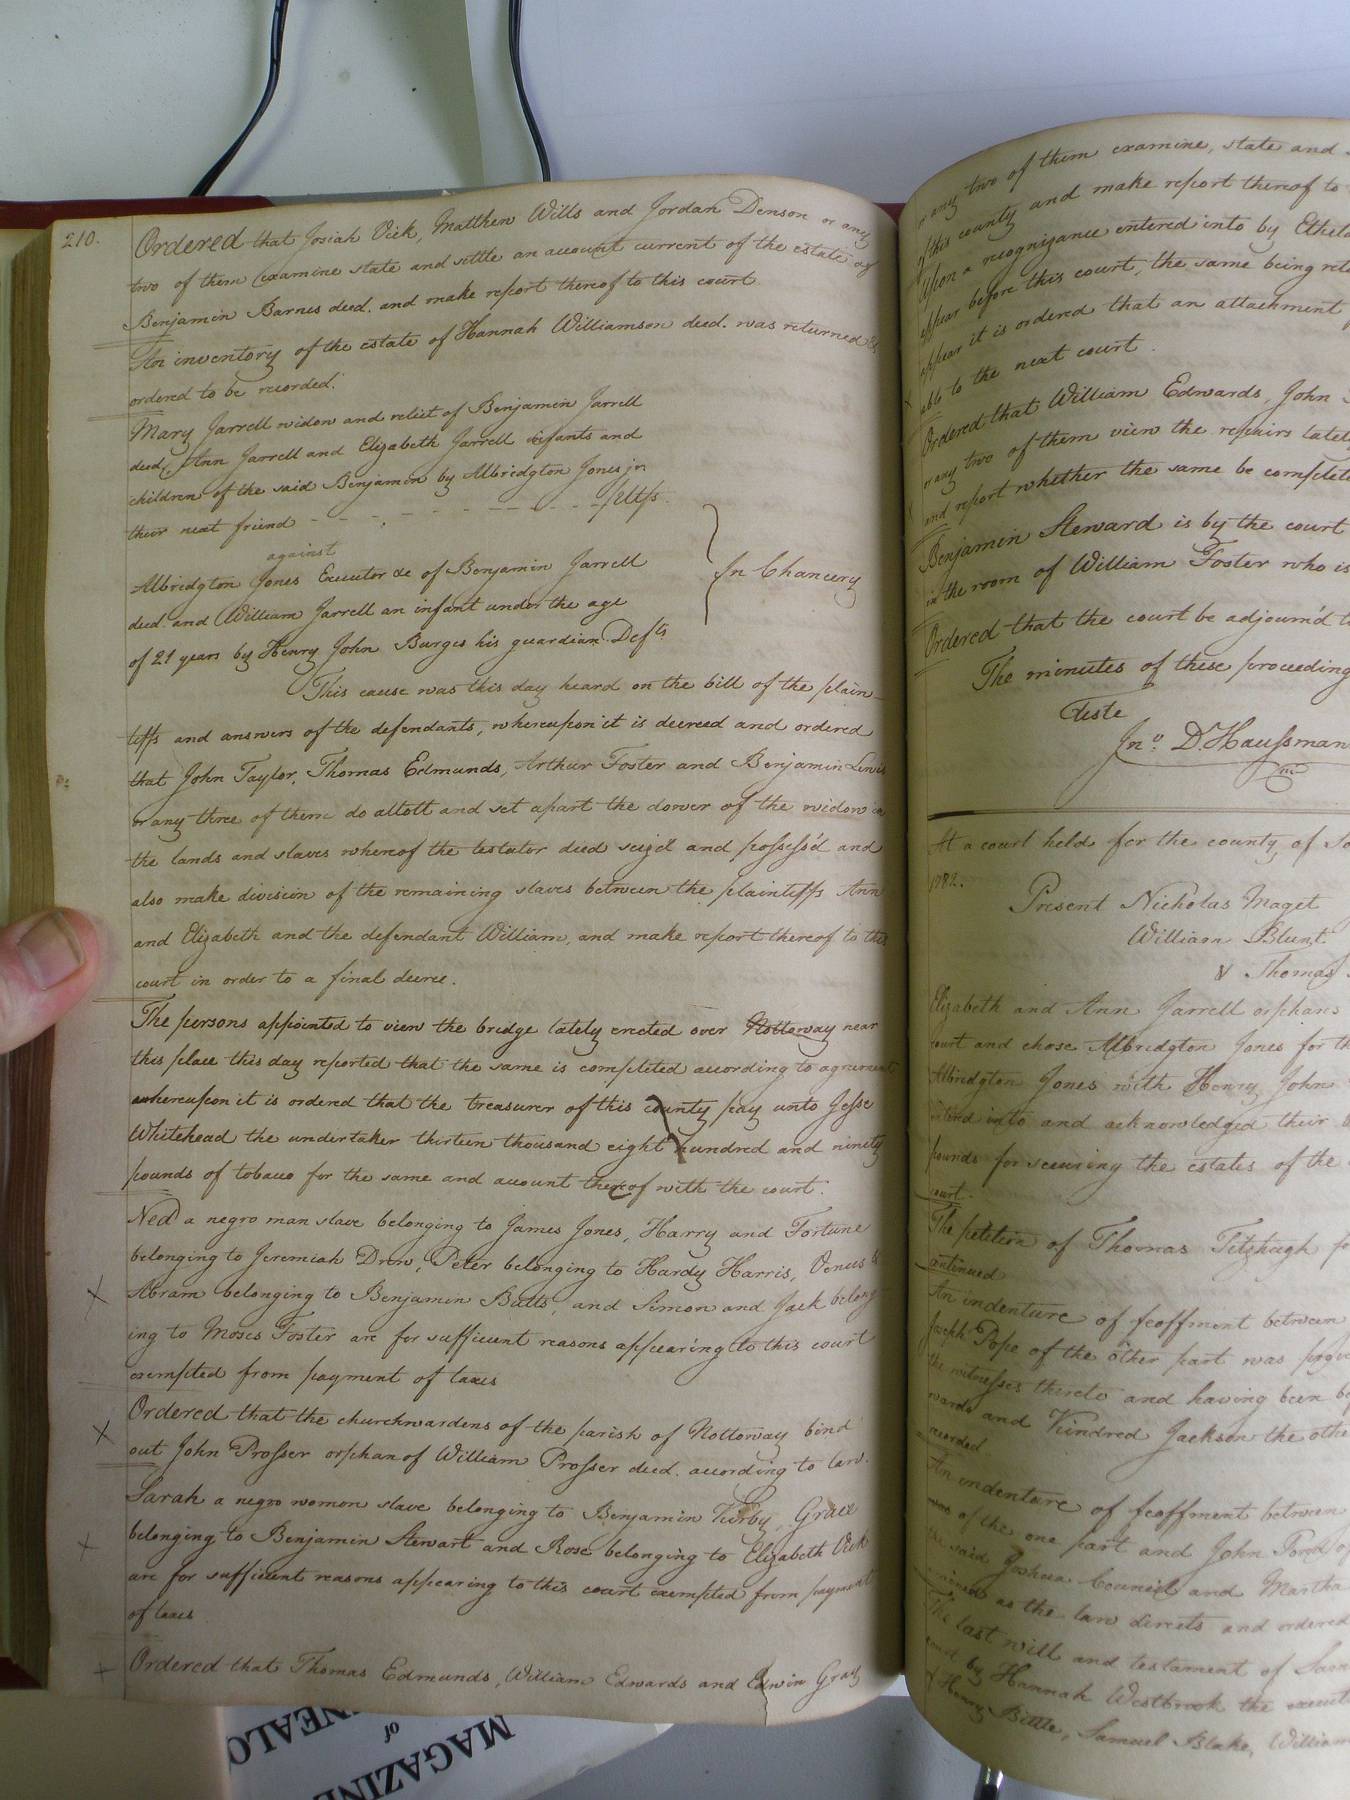 210.
Ordered that Josiah Vick, Matthew Wills and Jordan Denson or any
two of them examine state and settle an account current of the estate of
Benjamin Barnes decd. and make report thereof to this court.
An inventory of the estate of Hannah Williamson decd. was returned &
ordered to be recorded.
Mary Jarrell widow and relict of Benjamin Jarrell
decd, Ann Jarrell and Elizabeth Jarrell infants and
children of the said Benjamin by Albridgton Jones jr.
their next friend - - - - - - - - - - - - pltfs.
against
Albridgton Jones Executor &c of Benjamin Jarrell
decd. and William Jarrell an infant under the age
of 21 years by Henry John Burges his guardian Defts.
In Chancery
This cause was this day heard on the bill of the plain-
tiffs and answers of the defendants, whereupon it is decreed and ordered
that John Taylor, Thomas Edmunds, Arthur Foster and Benjamin Lewis
or any three of them do allott and set apart the dower of the widow in
the lands and slaves whereof the testator died seiz'd and possess'd and
also make division of the remaining slaves between the plaintiffs Ann
and Elizabeth and the defendant William, and make report thereof to this
court in order to a final decree.
The persons appointed to view the bridge lately erected over Nottoway near
this place this day reported that the same is completed according to agreement
whereupon it is ordered that the treasurer of this county pay unto Jesse
Whitehead the undertaker thirteen thousand eight hundred and ninety
pounds of tobacco for the same and account thereof with the court.
Ned a negro man slave belonging to James Jones, Harry and Fortune
belonging to Jeremiah Drew, Peter belonging to Hardy Harris, Venus &
Abram belonging to Benjamin Butts, and Simon and Jack belong-
ing to Moses Foster are for sufficient reasons appearing to this court
exempted from payment of taxes
Ordered that the churchwardens of the parish of Nottoway bind
out John Prosser orphan of William Prosser decd. according to law.
Sarah a negro woman slave belonging to Benjamin Kirby, Grace
belonging to Benjamin Stewart and Rose belonging to Elizabeth Vick
are for sufficient reasons appearing to this court exempted from payment
of taxes
Ordered that Thomas Edmunds, William Edwards and Edwin Gray
or any two of them examine, state and
of this county and make report thereof to
Upon a recognizance entered into by
appear before this court, the same being
appear it is ordered that an attachment
able to the next court.
Ordered that William Edwards, John
or any two of them view the repairs
and report whether the same be
Benjamin Steward is by the court
in the room of William Foster who is
Ordered that the court be adjourn'd
The minutes of these proceeding
Teste
Jno. D. Haussman
At a court held for the county of
1782.
Present Nicholas Maget
William Blunt
& Thomas
Elizabeth and Ann Jarrell orphans
court and chose Albridgton Jones for
Albridgton Jones with Henry John
entered into and acknowledged their
pounds for securing the estates of the
court.
The petition of Thomas Fitzhugh
continued
An indenture of feoffment between
Joseph Pope of the other part was
the witnesses thereto and having been
wards and Kindred Jackson the
recorded
An indenture of feoffment between
of the one part and John Pond
the said Joshua Council and Martha
as the law directs and ordered
The last will and testament of
court by Hannah Westbrook the
& Henry Bittle, Samuel Blake, William
MAGAZINE
of